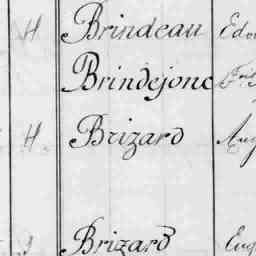 H Brindeau Edo
Brindejonc
H. Brizard Aug
J Brizard Eug